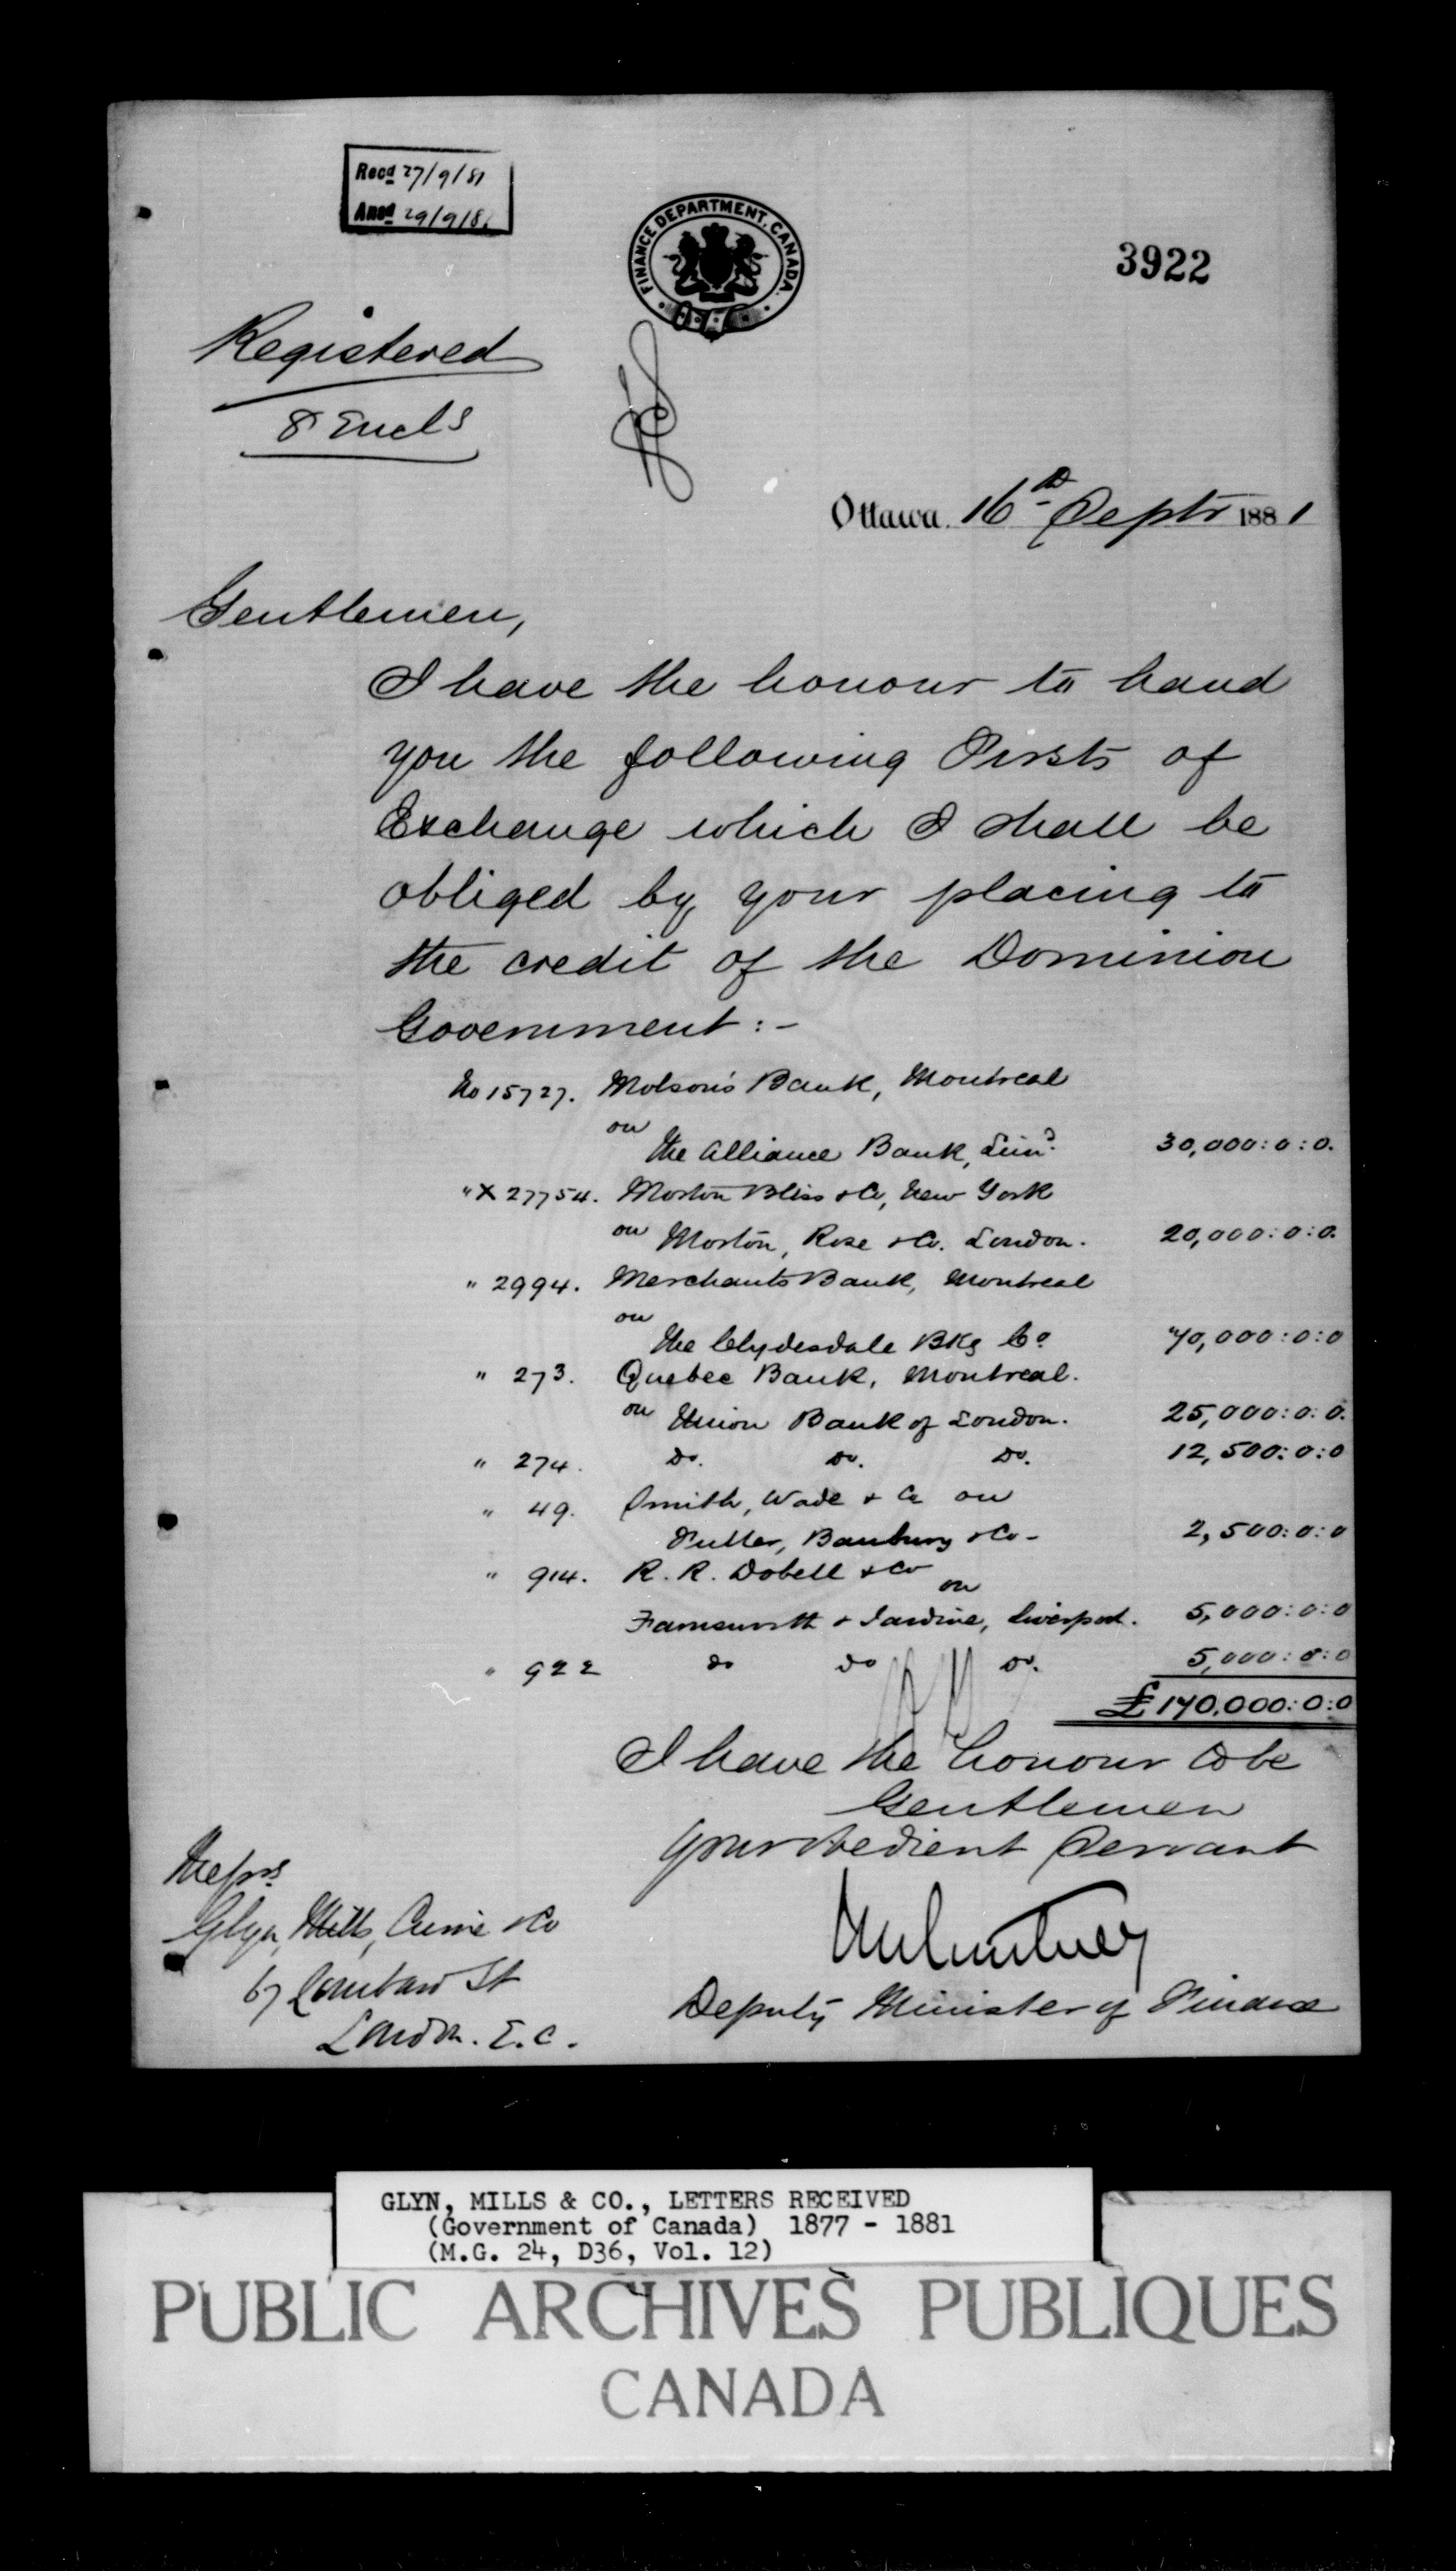 Recd 27/9/81
Ansd 29/9/81
FINANCE DEPARTMENT, CANADA.
3922
Registered
8 Encls
Ottawa. 16th Septr 1881
Gentlemen,
I have the honour to hand
you the following Firsts of
Exchange which I shall be
obliged by your placing to
the credit of the Dominion
Government :-
No 15727. Molson's Bank, Montreal
on
the Alliance Bank, Limd. 30,000:0:0.
" X 27754. Morton Bliss & Co, New York
on Morton, Rose & Co. London. 20,000:0:0.
" 2994. Merchants Bank, Montreal
on
the Clydesdale Bkg Co.
" 273. Quebec Bank, Montreal.
on Union Bank of London. 25,000:0:0.
" 274. Do. Do. Do. 12,500:0:0
" 49. Smith, Wade & Co on
Fuller, Banbury & Co - 2,500:0:0
" 914. R. R. Dobell & Co on
Farnsworth & Jardine, Liverpool. 5,000:0:0
" 922 do do Do. 5,000:0:0
I have the honour to be
Gentlemen
Your obedient Servant
Deputy Minister of Finance
Messrs
Glyn, Mills, Currie & Co
67 Lombard St
London. E.C.
GLYN, MILLS & CO., LETTERS RECEIVED
(Government of Canada) 1877 - 1881
(M.G. 24, D36, Vol. 12)
PUBLIC ARCHIVES PUBLIQUES
CANADA